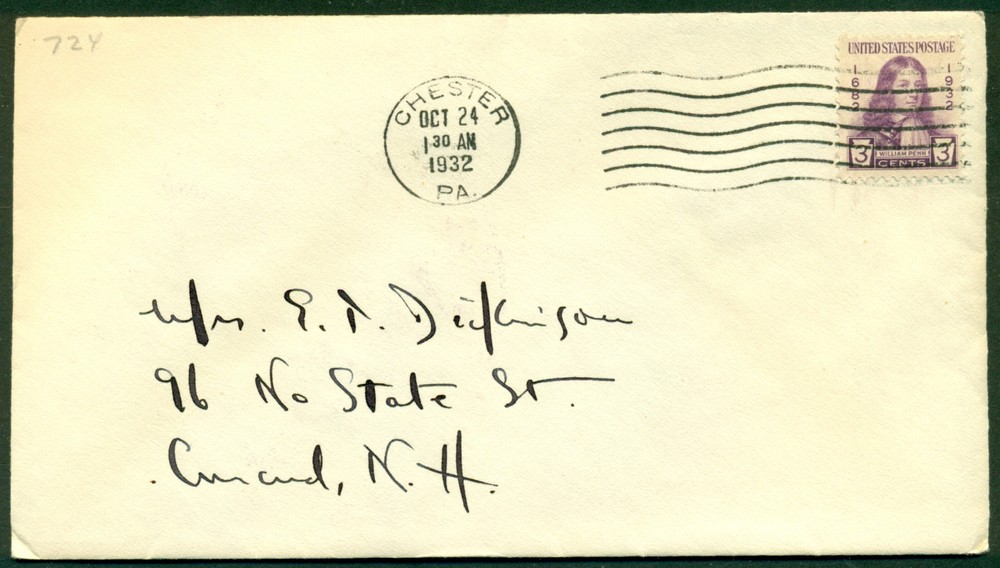 724
UNITED STATES POSTAGE
1682
1932
WILLIAM PENN
3 CENTS 3
CHESTER
OCT 24
1 30 AM
1932
PA.
Mrs. E. T. Dickinson
96 No State St.
Concord, N. H.